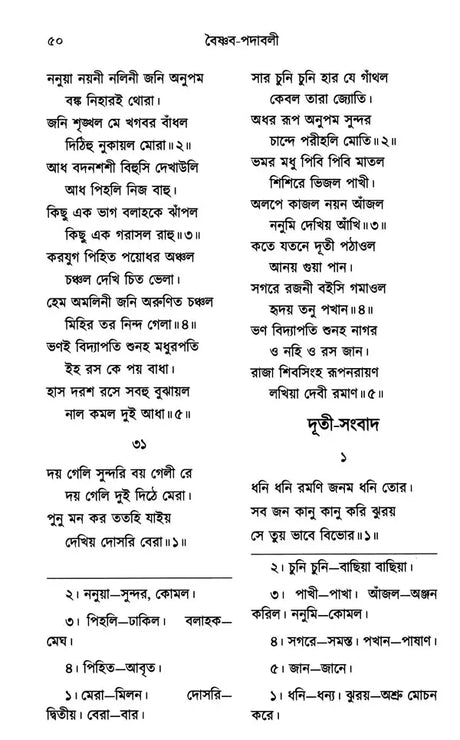 ৫০
বৈষ্ণব-পদাবলী
ননুয়া নয়নী নলিনী জনি অনুপম
বঙ্ক নিহারই থোরা।
জনি শৃঙ্খল মে খগবর বাঁধল
দিঠিহু নুকায়ল মোরা॥২॥
আধ বদনশশী বিহুসি দেখাউলি
আধ পিহলি নিজ বাহু।
কিছু এক ভাগ বলাহকে ঝাঁপল
কিছু এক গরাসল রাহু॥৩॥
করযুগ পিহিত পয়োধর অঞ্চল
চঞ্চল দেখি চিত ভেলা।
হেম অমলিনী জনি অরুণিত চঞ্চল
মিহির তর নিন্দ গেলা॥৪॥
ভণই বিদ্যাপতি শুনহ মধুরপতি
ইহ রস কে পয় বাধা।
হাস দরশ রসে সবহু বুঝায়ল
নাল কমল দুই আধা॥৫॥
৩১
দয় গেলি সুন্দরি বয় গেলী রে
দয় গেলি দুই দিঠে মেরা।
পুনু মন কর ততহি যাইয়
দেখিয় দোসরি বেরা॥১॥
২। ননুয়া—সুন্দর, কোমল।
৩। পিহলি—ঢাকিল। বলাহক—
মেঘ।
৪। পিহিত—আবৃত।
১। মেরা—মিলন। দোসরি—
দ্বিতীয়। বেরা—বার।
সার চুনি চুনি হার যে গাঁথল
কেবল তারা জ্যোতি।
অধর রূপ অনুপম সুন্দর
চান্দে পরীহলি মোতি॥২॥
ভমর মধু পিবি পিবি মাতল
শিশিরে ভিজল পাখী।
অলপে কাজল নয়ন আঁজল
ননুমি দেখিয় আঁখি॥৩॥
কতে যতনে দূতী পঠাওল
আনয় গুয়া পান।
সগরে রজনী বইসি গমাওল
হৃদয় তনু পখান॥৪॥
ভণ বিদ্যাপতি শুনহ নাগর
ও নহি ও রস জান।
রাজা শিবসিংহ রূপনরায়ণ
লখিয়া দেবী রমাণ॥৫॥
দূতী-সংবাদ
১
ধনি ধনি রমণি জনম ধনি তোর।
সব জন কানু কানু করি ঝুরয়
সে তুয় ভাবে বিভোর॥১॥
২। চুনি চুনি—বাছিয়া বাছিয়া।
৩। পাখী—পাখা। আঁজল—অঞ্জন
করিল। ননুমি—কোমল।
৪। সগরে—সমস্ত। পখান—পাষাণ।
৫। জান—জানে।
১। ধনি—ধন্য। ঝুরয়—অশ্রু মোচন
করে।